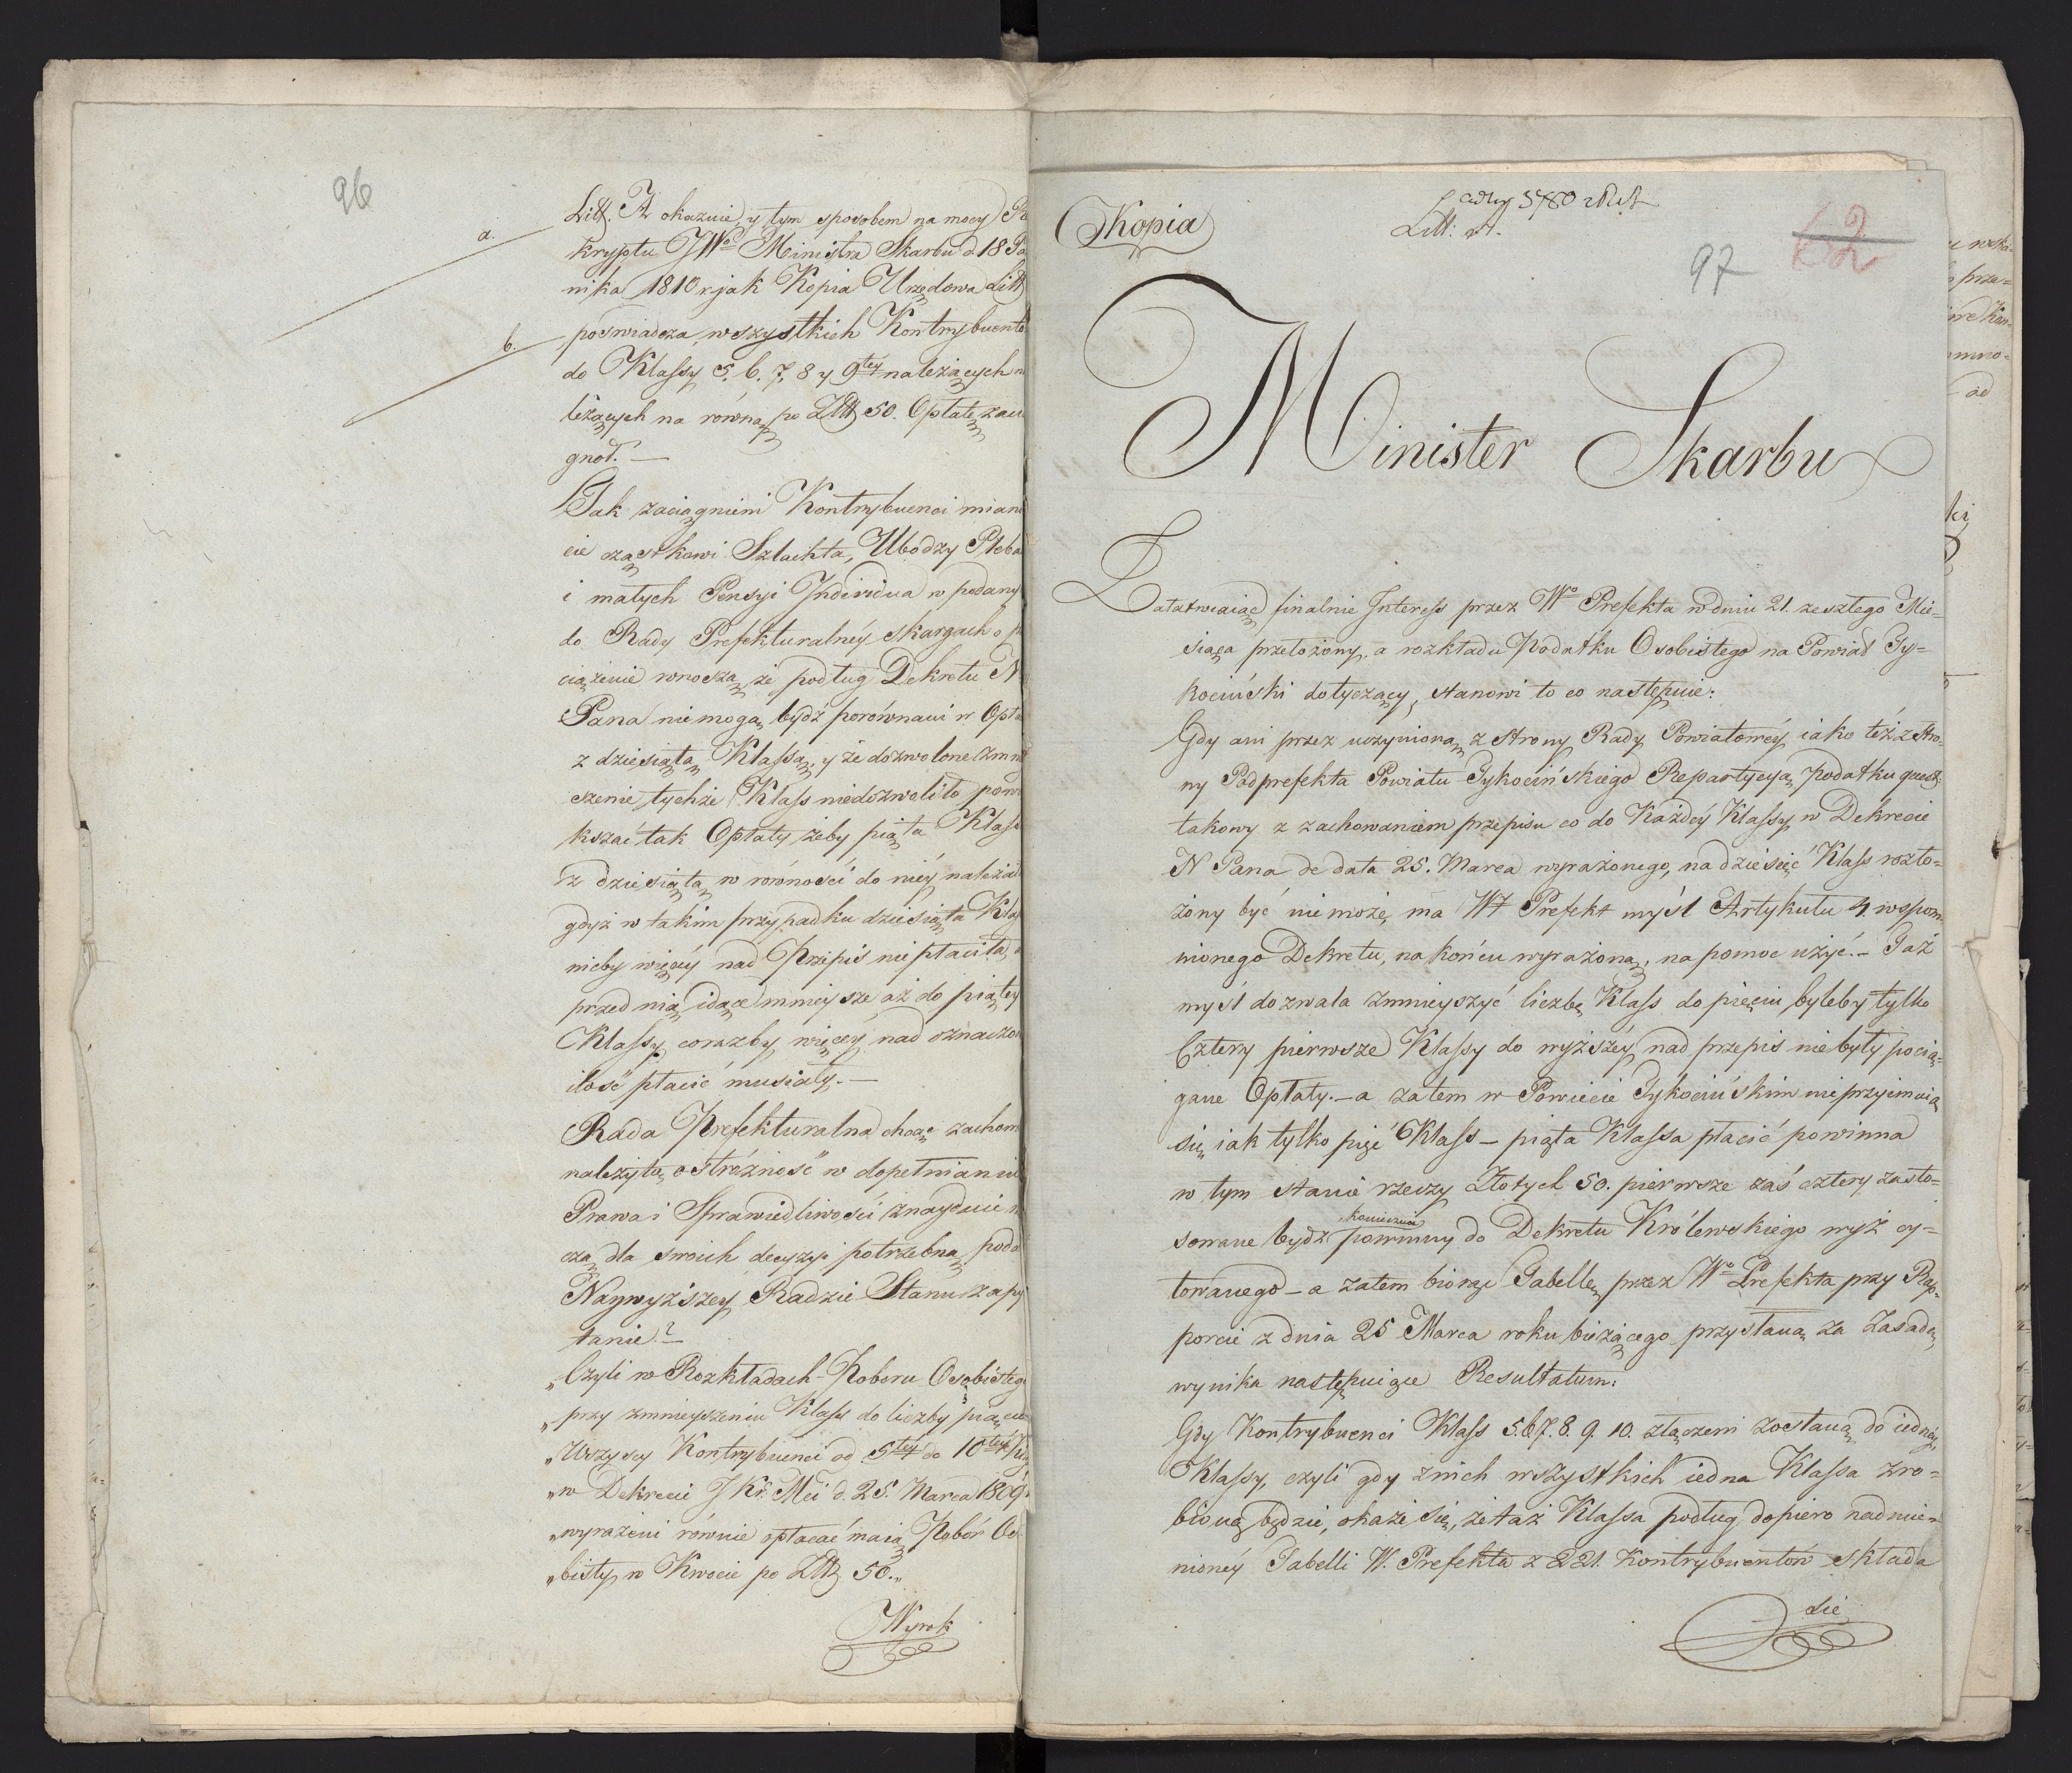 96
a.
b.
Litt. A okazuie, y tym sposobem na mocy
kryptu JWo Ministra Skarbu d 18 Pa
nika 1810 r jak Kopia Urzędowa Litt
poświadcza, wszystkich Kontrybuento
do Klassy 5. 6. 7. 8 y 9tey należących n
leżących na równą po Złtt 50. Opłatę zacią
gnoł. —
Tak zaciągnieni Kontrybuenci miano
cie cząstkowi Szlachta, Ubodzy Pleba
i małych Pensyi Individua w podany
do Rady Prefekturalnéy skargach o p
ciążenie wnoszą, że podług Dekretu N
Pana nie mogą bydź porównani w Opła
z dziesiątą Klassą, y że dozwolone zmnie
szenie tychże Klass niedozwoliło powi
kszać tak Opłaty żeby piąta Klass
z dziesiątą w równości do niéy należał
gdyż w takim przypadku dziesiąta Klas
nieby więcéy nad Przepis nie płaciła, a
przed nią idące mnieysze aż do piątey
Klassy, corazby więcey nad oznaczon
ilość płacić musiały. —
Rada Prefekturalna chcąc zachow
należytą ostróżność w dopełnianiu
Prawa i Sprawiedliwości znayduie
czą dla swoich decyzyi potrzebną, poda
Naywyższey Radzie Stanu zapy
tanie? —
„Czyli w Rozkładach Poboru Osobisteg
„przy zmnieyszeniu Klass do liczby pięciu
„Wszyscy Kontrybuenci od 5tey do 10tey
„w Dekrecie J Kr. Mci d. 25. Marca 1809
„wyrażeni równie opłacać maią Pobór Os
„bisty w Kwocie po Złtt 50.„
Wyrok
Kopia
Litt: A.
97
62
Minister Skarbu
Załatwiaiąc finalnie Interess przez Wo Prefekta w dniu 21. zeszłego Mie=
siąca przełożony, a rozkładu Podatku Osobistego na Powiat Ty=
kociński dotyczący, stanowi to co następuie:
Gdy ani przez uczynioną z strony Rady Powiatowéy iako też z stro=
ny Podprefekta Powiatu Tykocińskiego Repartycyą Podatku quest:
takowy z zachowaniem przepisu co do Każdéy Klassy w Dekrecie
N Pana de data 25. Marca wyrażonego, na dziesięć Klass rozło=
żony być nie może, ma Wy Prefekt myśl Artykułu 4 wspom=
nionego Dekretu, na końcu wyrażoną, na pomoc użyć. – Taż
myśl dozwala zmnieyszyć liczbę Klass do pięciu, byleby tylko
Cztery pierwsze Klassy do wyższéy nad przepis nie były pocią=
gane Opłaty. – a zatem w Powiecie Tykocińskim nie przyimuią
się, iak tylko pięć Klass – piąta Klassa płacić powinna
w tym stanie rzeczy Złotych 50. pierwsze zaś cztery zasto=
koniecznie
sowane bydź powinny do Dekretu Królewskiego wyż cy=
towanego – a zatem biorąc Tabellę, przez Wo Prefekta przy Rap=
porcie z dnia 25 Marca roku bieżącego przysłaną za Zasadę
wynika następuiące Resultatum:
Gdy Kontrybuenci Klass 5.6.7.8.9.10. złączeni zostaną do iednéy
Klassy, czyli gdy z nich wszystkich iedna Klassa zro=
bioną będzie, okaże się, że taż Klassa podług dopiero nadmie=
nionéy Tabelli W. Prefekta z 221. Kontrybuentów składa
się